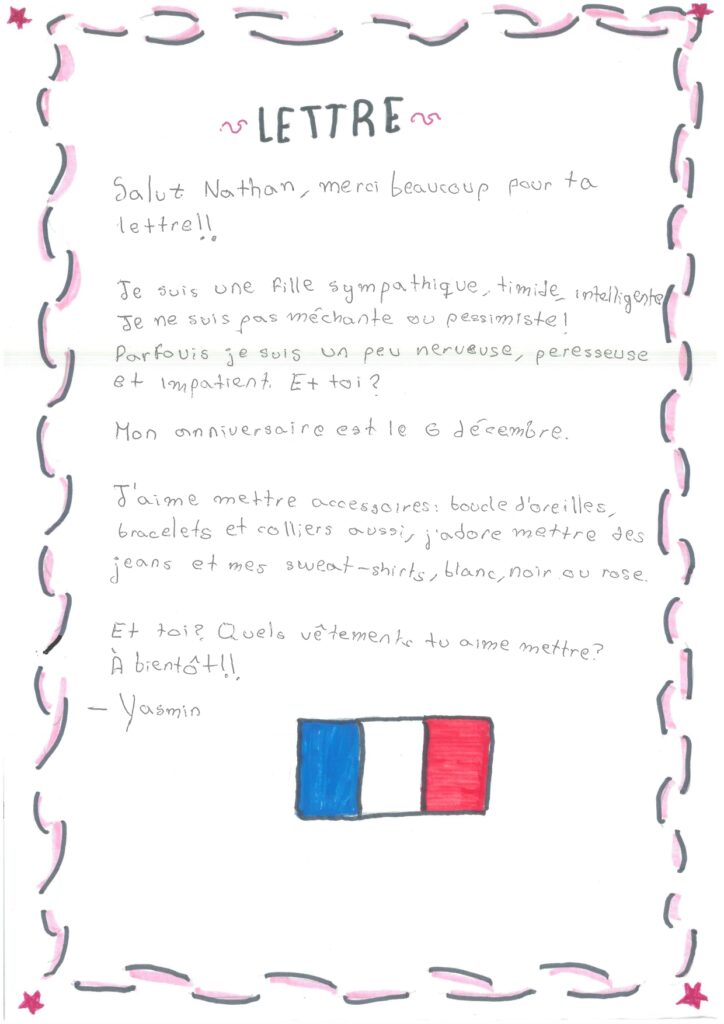 LETTRE
Salut Nathan, merci beaucoup pour ta
lettre!!
Je suis une fille sympathique, timide, intelligente
Je ne suis pas méchante ou pessimiste!
Parfouis je suis un peu nerveuse, peresseuse
et impatient. Et toi?
Mon anniversaire est le 6 décembre.
J'aime mettre accessoires: boucle d'oreilles,
bracelets et colliers aussi, j'adore mettre des
jeans et mes sweat-shirts, blanc, noir ou rose.
Et toi? Quels vêtements tu aime mettre?
À bientôt!!
- Yasmin